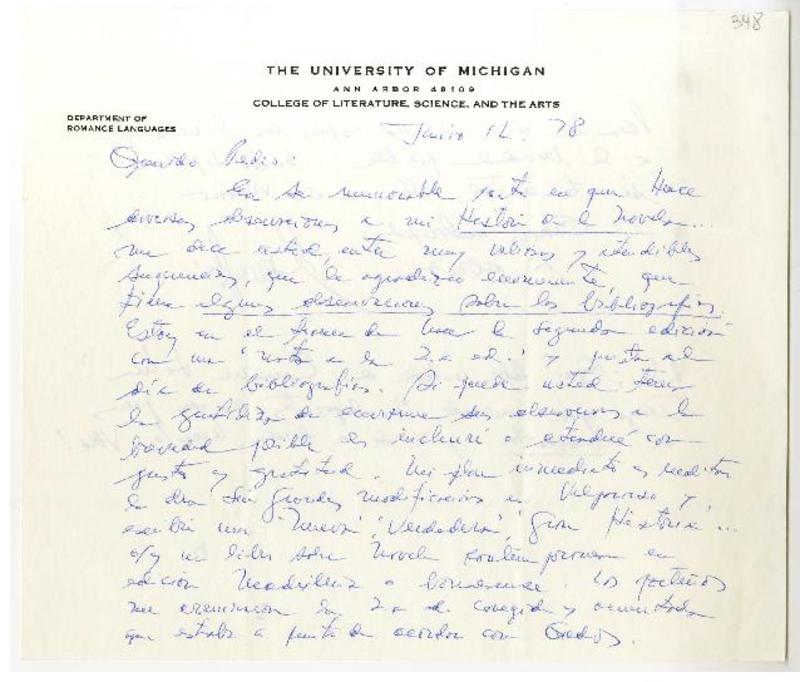 348
THE UNIVERSITY OF MICHIGAN
ANN ARBOR 48109
COLLEGE OF LITERATURE, SCIENCE, AND THE ARTS
DEPARTMENT OF
ROMANCE LANGUAGES
78
Querido Pedro:
En su memorable carta en que hace
diversas observaciones a mi Historia de la Novela...
me dice usted, entre muy valiosas y atendibles
sugerencias, que le agradezco que
tiene algunas observaciones sobre las bibliografías.
Estoy en el de la segunda edición
con una "Nota a la 2.a ed." y puesta al
día de bibliografías. Si puede usted tener
la gentileza de sus a la
brevedad posible las incluiré o atenderé con
gusto y gratitud. Mi plan inmediato es reeditar
la obra sin grandes modificaciones en Valparaíso y
escribir una "Nueva", "Verdadera", Gran Historia...
o/y un libro sobre Novela contemporánea en
edición Madrileña o bonaerense. Los
me la 2.a ed. corregida y aumentada
que estaba a punto de acordar con Gredos.